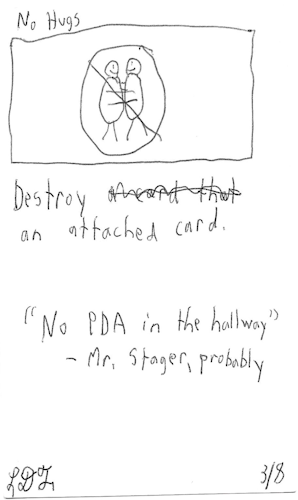 No Hugs
Destroy a card that
an attached card.
"No PDA in the hallway"
- Mr. Stager, probably
3/8